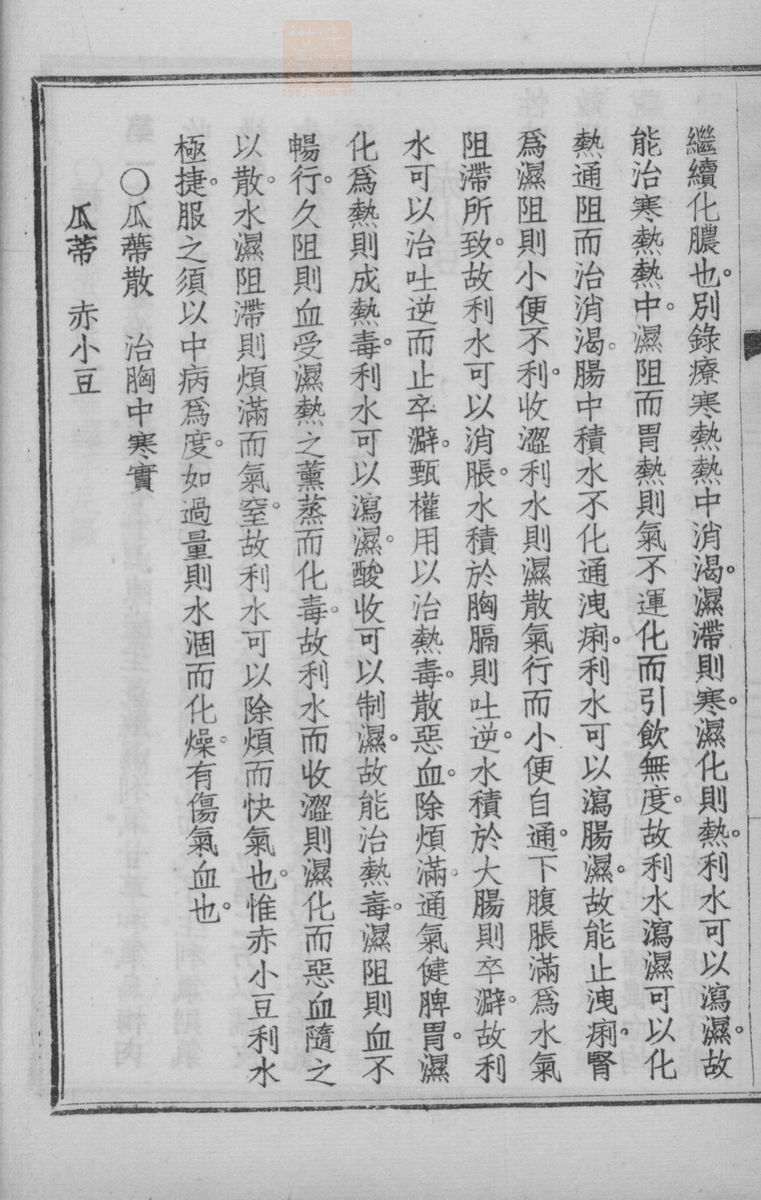 繼續化膿也。別錄療寒熱熱中消渴。濕滯則寒。濕化則熱。利水可以瀉濕。故
能治寒熱熱中。濕阻而胃熱則氣不運化而引飲無度。故利水瀉濕可以化
熱通阻而治消渴。腸中積水不化通洩痢。利水可以瀉腸濕。故能止洩痢。腎
爲濕阻則小便不利。收澀利水則濕散氣行而小便自通。下腹脹滿爲水氣
阻滯所致。故利水可以消脹。水積於胸膈則吐逆。水積於大腸則卒澼。故利
水可以治吐逆而止卒澼。甄權用以治熱毒。散惡血。除煩滿。通氣健脾胃。濕
化爲熱則成熱毒。利水可以瀉濕。酸收可以制濕。故能治熱毒。濕阻則血不
暢行。久阻則血受濕熱之薰蒸而化毒。故利水而收澀則濕化而惡血隨之
以散。水濕阻滯則煩滿而氣窒。故利水可以除煩而快氣也。惟赤小豆利水
極捷。服之須以中病爲度。如過量則水涸而化燥。有傷氣血也。
○瓜蔕散 治胸中寒實
瓜蔕 赤小豆